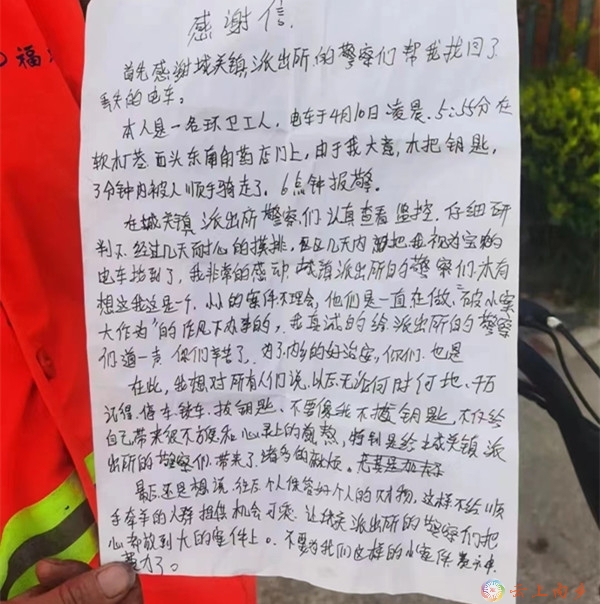 福
感谢信
首先感谢城关镇派出所的警察们帮我找回了
丢失的电车。
本人是一名环卫工人,电车于4月10日凌晨5:55分在
软木巷西头东南角药店门上,由于我大意,木把钥匙,
3分钟内被人顺手骑走了,6点钟报警。
在城关镇派出所警察们认真查看监控,仔细研
判下,经过几天耐心的摸排,在几天内把我视为宝的
电车找到了,我非常的感动,城关镇派出所的警察们木有
想这我这是一个小小的案件不理会,他们是一直在做"小案
大作为"的作风下办事的,我真诚的给派出所的警察
们道一声你们辛苦了,为了内乡的好治安,你们也是
在此,我想对所有人们说,以后无论何时何地,千万
记得停车锁车,拔钥匙,不要像我不拔钥匙,不仅给
自己带来很不方便和心灵上的煎熬,特别是给城关镇派
出所的警察们带来了诸多的麻烦。
最后还是想说,往后个人保管好个人的财物,这样不给顺
手牵羊的人群提供机会可乘,让城关派出所的警察们把
心都放到大的案件上。不要为我们这样的小案件费
警力了。
云上南阳